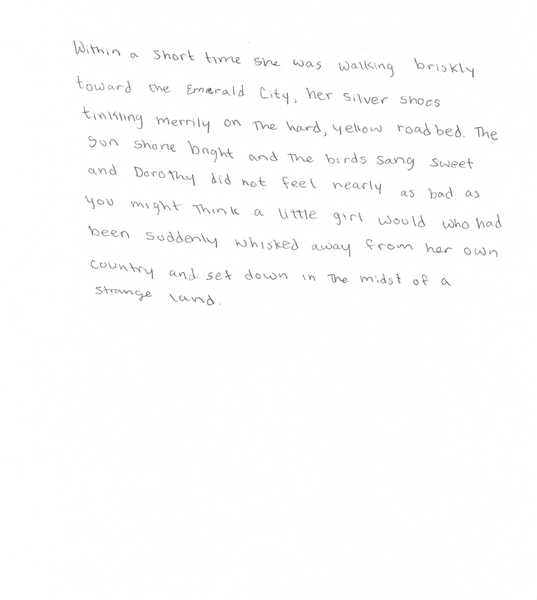 Within a short time she was walking briskly
toward the Emerald City, her silver shoes
tinkling merrily on the hard, yellow roadbed. The
sun shone bright and the birds sang sweet
and Dorothy did not feel nearly as bad as
you might think a little girl would who had
been suddenly whisked away from her own
country and set down in the midst of a
strange land.